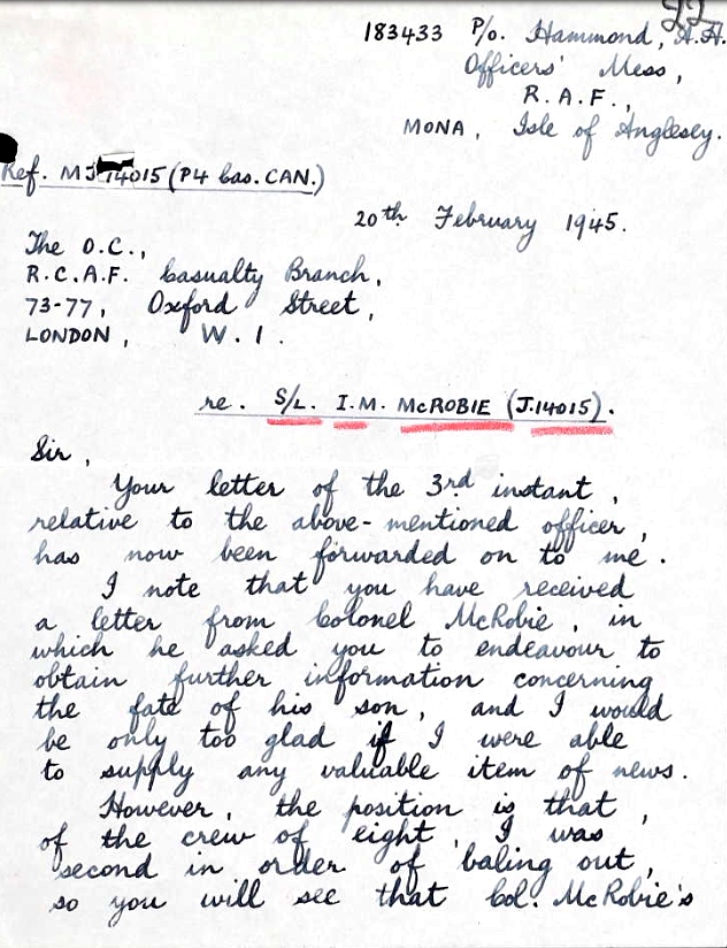 22
183433 P/o. Hammond, A.H.
Officers' Mess,
R.A.F.,
MONA, Isle of Anglesey.
Ref. MJ 14015 (P4 Cas. CAN.)
20th February 1945.
The O.C.,
R.C.A.F. Casualty Branch,
73-77, Oxford Street,
LONDON, W. 1.
re. S/L. I.M. McROBIE (J.14015).
Sir,
Your letter of the 3rd instant,
relative to the above-mentioned officer,
has now been forwarded on to me.
I note that you have received
a letter from Colonel McRobie, in
which he asked you to endeavour to
obtain further information concerning
the fate of his son, and I would
be only too glad if I were able
to supply any valuable item of news.
However, the position is that,
of the crew of eight, I was
second in order of baling out,
so you will see that Col. McRobie's